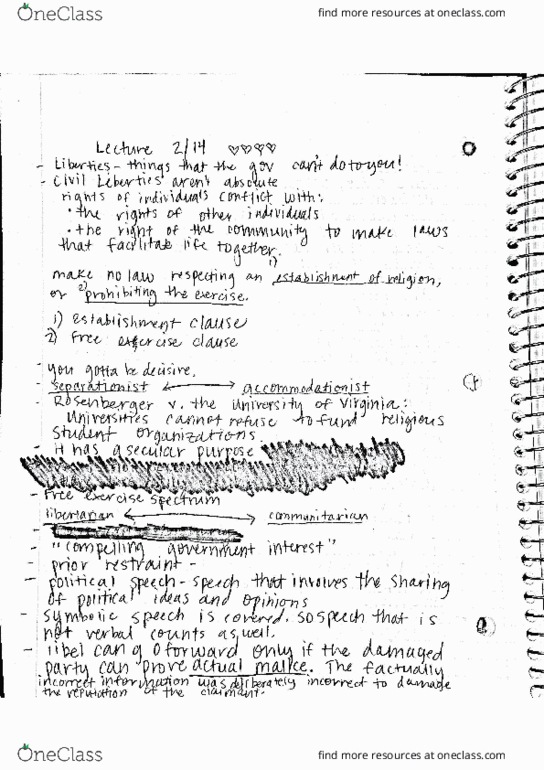 OneClass
find more resources at oneclass.com
Lecture 2/14 ♡♡♡♡
- Liberties - things that the gov can't do to you!
- Civil Liberties aren't absolute
rights of individuals conflict with:
• the rights of other individuals
• the right of the community to make laws
that facilitate life together.
1)
make no law respecting an establishment of religion,
or 2) prohibiting the exercise.
1) Establishment clause
2) Free exercise clause
- you gotta be decisive.
- separationist ⟷ accommodationist
- Rosenberger v. the University of Virginia:
Universities cannot refuse to fund religious
student organizations.
- it has a secular purpose
- Free exercise spectrum
libertarian ⟷ communitarian
-
- "compelling government interest"
- prior restraint -
- political speech - speech that involves the sharing
of political ideas and opinions
- symbolic speech is covered. so speech that is
not verbal counts as well.
- libel can go forward only if the damaged
party can prove actual malice. The factually
incorrect information was deliberately incorrect to damage
the reputation of the claimant.
OneClass
find more resources at oneclass.com